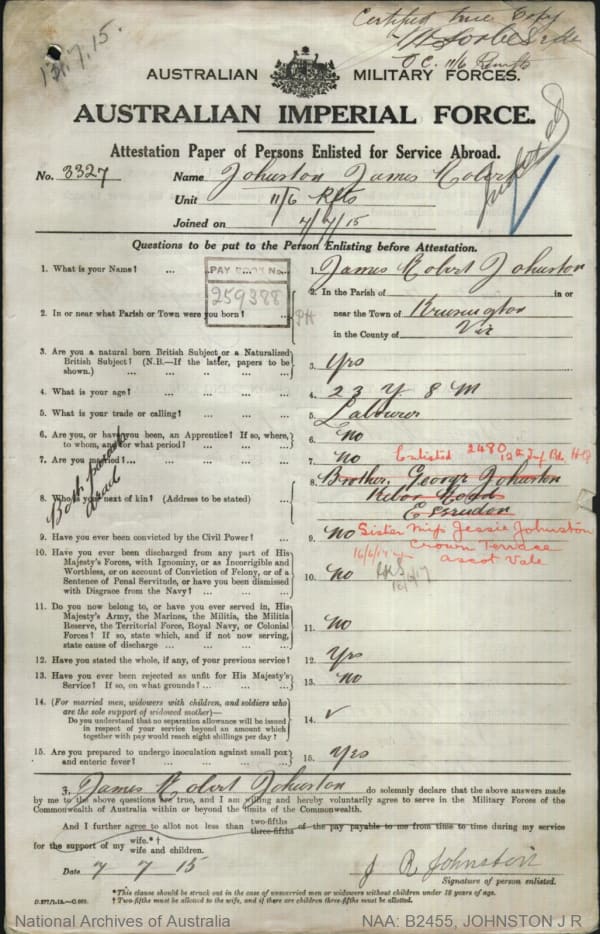 131.7.15.
Certified true Copy
O.C. 11/6 Remfts
AUSTRALIAN MILITARY FORCES.
AUSTRALIAN IMPERIAL FORCE.
Attestation Paper of Persons Enlisted for Service Abroad.
No. 3327 Name Johnston James Robert
Unit 11/6 Rfts
Joined on 7/7/15
Questions to be put to the Person Enlisting before Attestation.
1. What is your Name? ... ... 1. James Robert Johnston
PAY BOOK No.
259388
2. In or near what Parish or Town were you born? ... 2. In the Parish of in or
near the Town of
in the County of Vic
3. Are you a natural born British Subject or a Naturalized
British Subject? (N.B.—If the latter, papers to be
shown.) ... ... ... ... 3. Yes
4. What is your age? ... ... ... ... 4. 23 Y 8 M
5. What is your trade or calling? ... ... ... 5. Labourer
6. Are you, or have you been, an Apprentice? If so, where,
to whom, and for what period? ... ... ... 6. No
7. Are you married? ... ... ... ... 7. No
Enlisted 2480 12th Inf Bde HQ
Both parents
dead
8. Who is your next of kin? (Address to be stated) ... 8. Brother, George Johnston
Essendon
9. Have you ever been convicted by the Civil Power? ... 9. No
Sister Miss Jessie Johnston
Crown Terrace
Ascot Vale
10. Have you ever been discharged from any part of His
Majesty's Forces, with Ignominy, or as Incorrigible and
Worthless, or on account of Conviction of Felony, or of a
Sentence of Penal Servitude, or have you been dismissed
with Disgrace from the Navy? ... ... ... 10. No
11. Do you now belong to, or have you ever served in, His
Majesty's Army, the Marines, the Militia, the Militia
Reserve, the Territorial Force, Royal Navy, or Colonial
Forces? If so, state which, and if not now serving,
state cause of discharge ... ... ... ... 11. No
12. Have you stated the whole, if any, of your previous service? 12. Yes
13. Have you ever been rejected as unfit for His Majesty's
Service? If so, on what grounds? ... ... ... 13. No
14. (For married men, widowers with children, and soldiers who
are the sole support of widowed mother)—
Do you understand that no separation allowance will be issued
in respect of your service beyond an amount which
together with pay would reach eight shillings per day? ... 14. ✓
15. Are you prepared to undergo inoculation against small pox
and enteric fever? ... ... ... ... 15. Yes
I, James Robert Johnston do solemnly declare that the above answers made
by me to the above questions are true, and I am willing and hereby voluntarily agree to serve in the Military Forces of the
Commonwealth of Australia within or beyond the limits of the Commonwealth.
And I further agree to allot not less than two-fifths three-fifths of the pay payable to me from time to time during my service
for the support of my wife.*† wife and children.
Date 7 7 15 J R Johnston
Signature of person enlisted.
*This clause should be struck out in the case of unmarried men or widowers without children under 18 years of age.
† Two-fifths must be allotted to the wife, and if there are children three-fifths must be allotted.
National Archives of Australia NAA: B2455, JOHNSTON J R